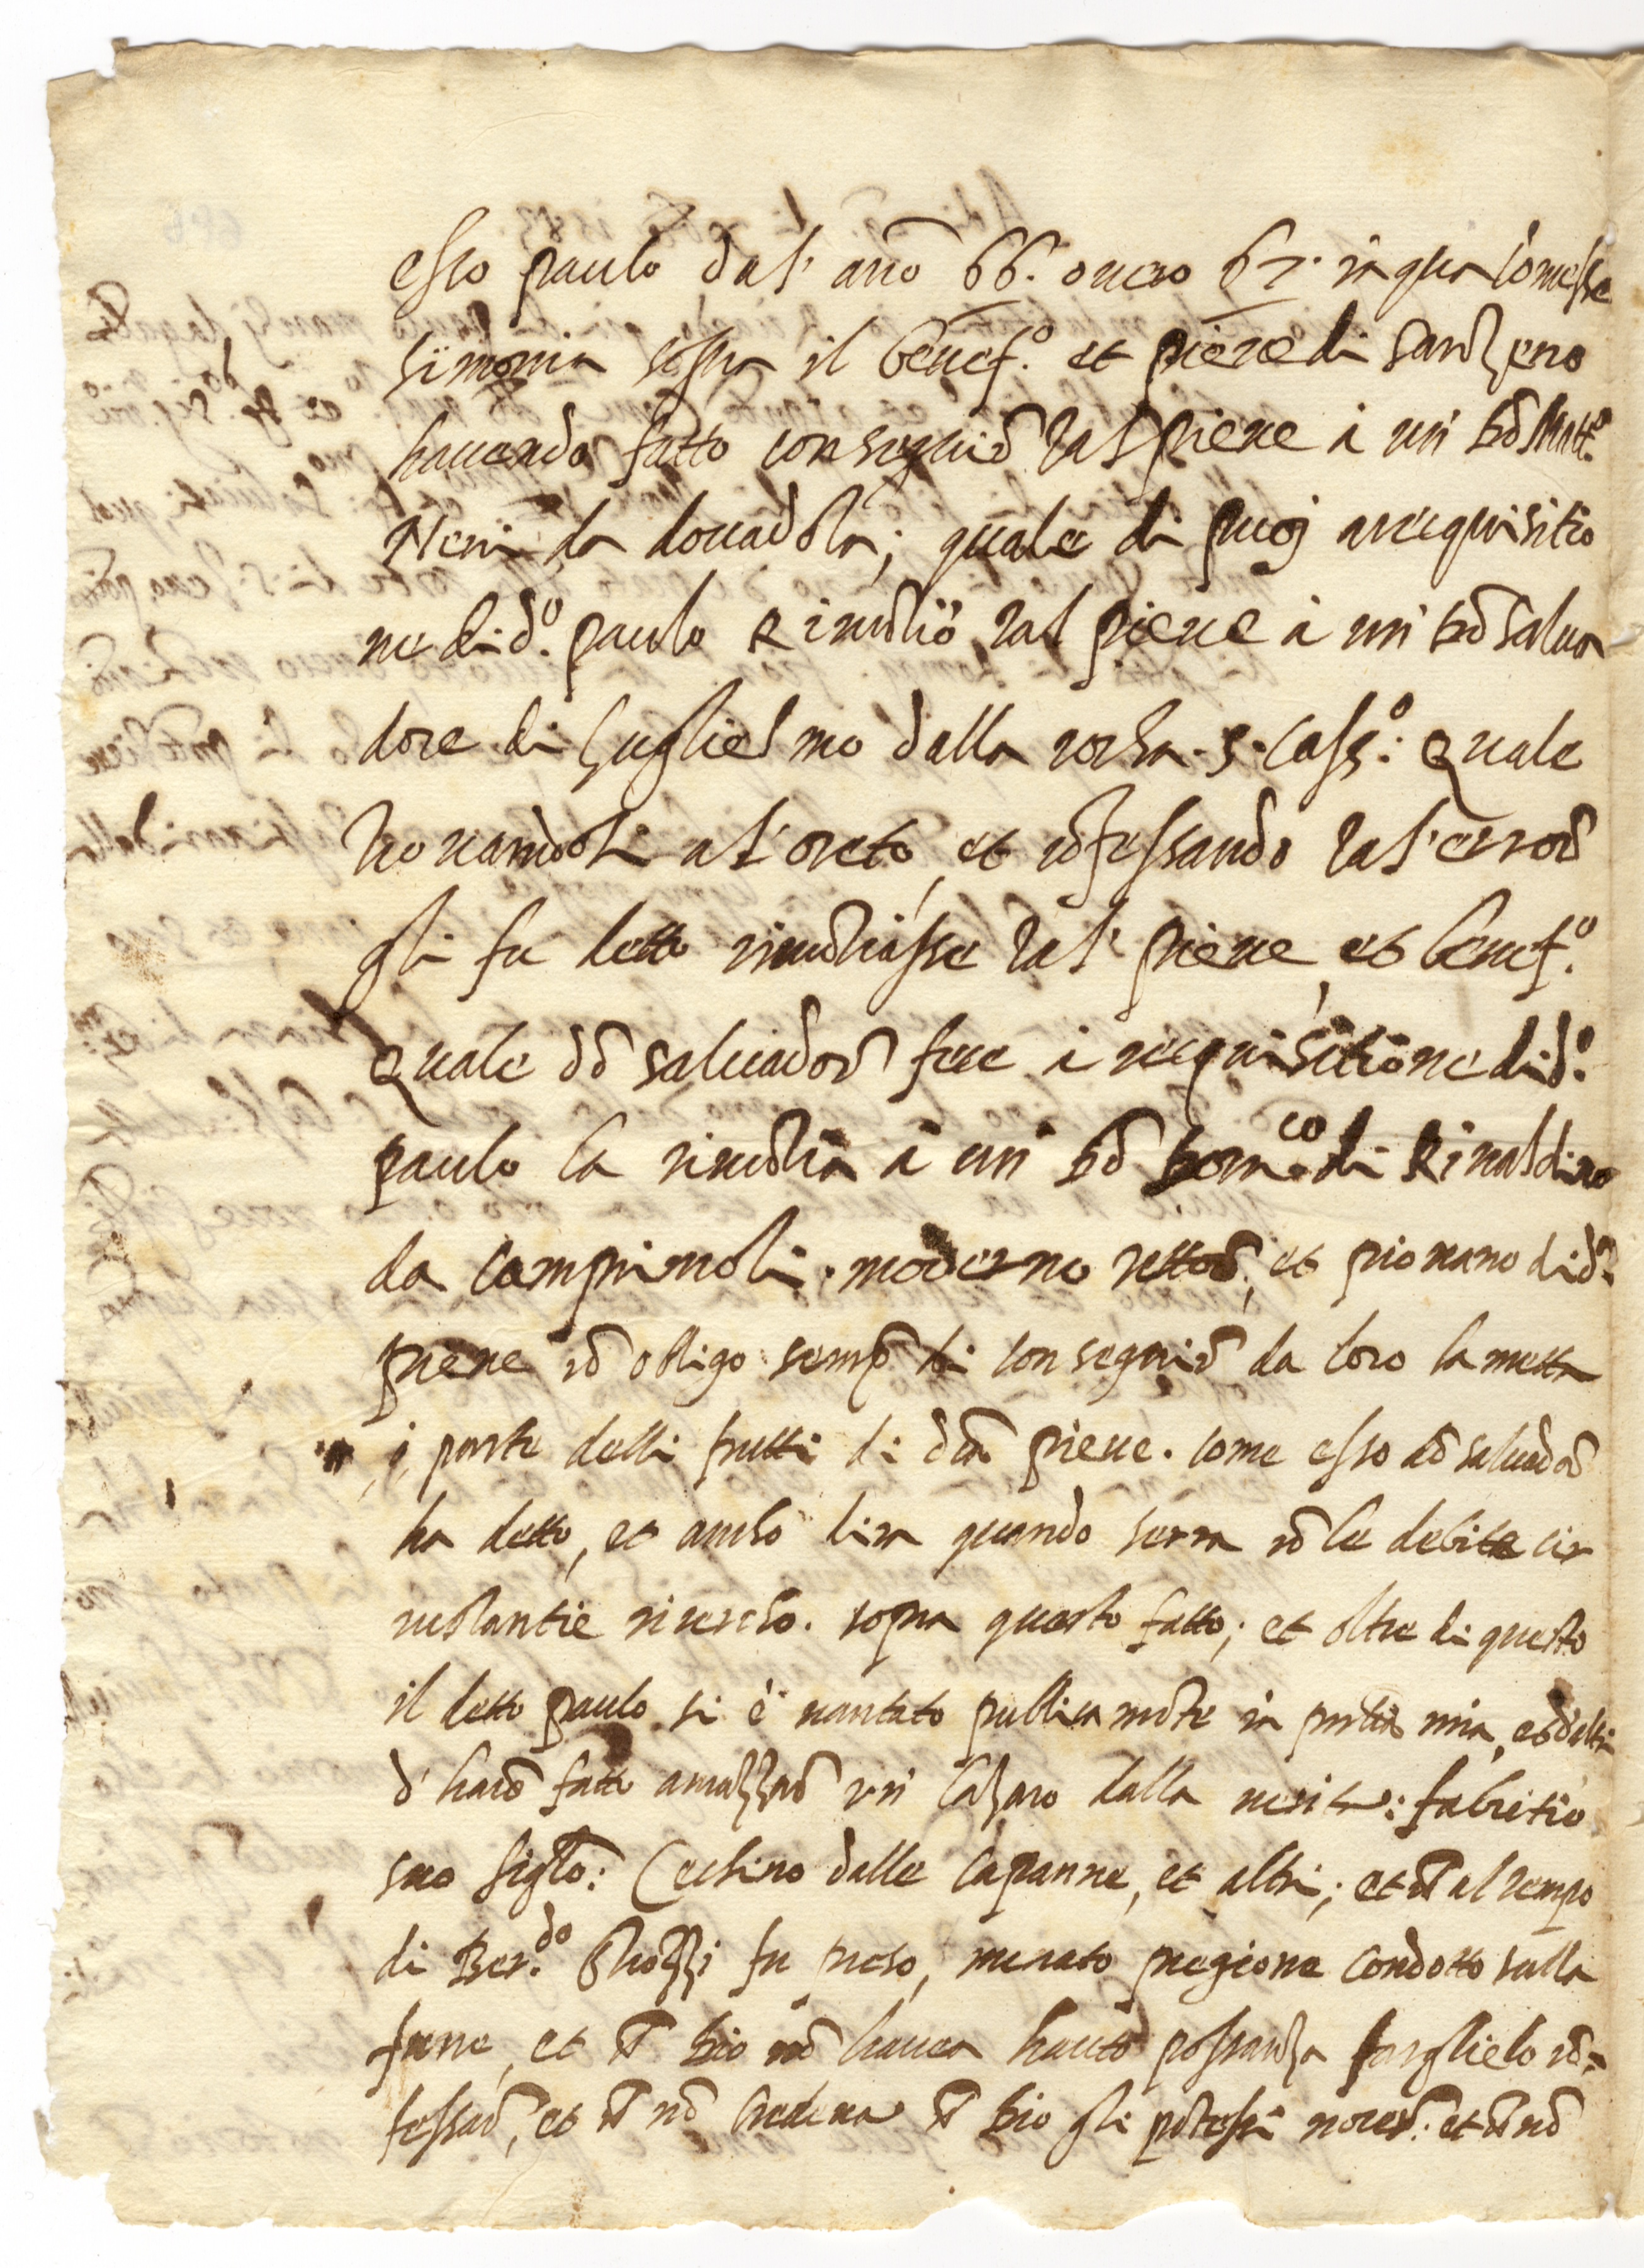 esso paulo dal' anō 66. overo 67. in qua cōmesse
simonia sopra il benef.º et pieve di sanzeno
havendo fatto conseguir̄ tal pieve à un' dō Matt.º
Neri da dovadola; quale di puoj a requisitio
ne di d.º paulo Rinūtiò tal pieve à un' dō salva
dore di Guglielmo dalla rocha. s. cass.º: quale
trovandosi a l'oreto et cōfessando tal' error̄
gli fu detto rinūtiasse tal' pieve et benef.º
quale dō salvador̄ fece à requisitione di d.º
paulo la rinūtia à un' dō Dom.co di Rinaldino
da campinoli. moderno rettor̄, et piovano di d.ª
pieve cō obligo semp̄ di conseguir̄ da loro la metta
parte delli frutti di d̄ta pieve. come esso dō salvador̄
ha detto, et ancho dira quando serra cō le debite cir
custantie ricercho. sopra questo fatto; et oltre di questo
il detto paulo si è vantato publicamēte in mia, et d'altri
d' haver̄ fatto amazzar̄ un' lazaro dalla : fabritio
suo figlio: Cechino dalle capanne, et altri; et al tempo
di Ber.do Strozzi fu preso, menato pregione condotto sulla
fune, et dio nō havea hauto possanza farglielo cō=
fessar̄, et nō credeva dio gli potessi nocer̄. et nō